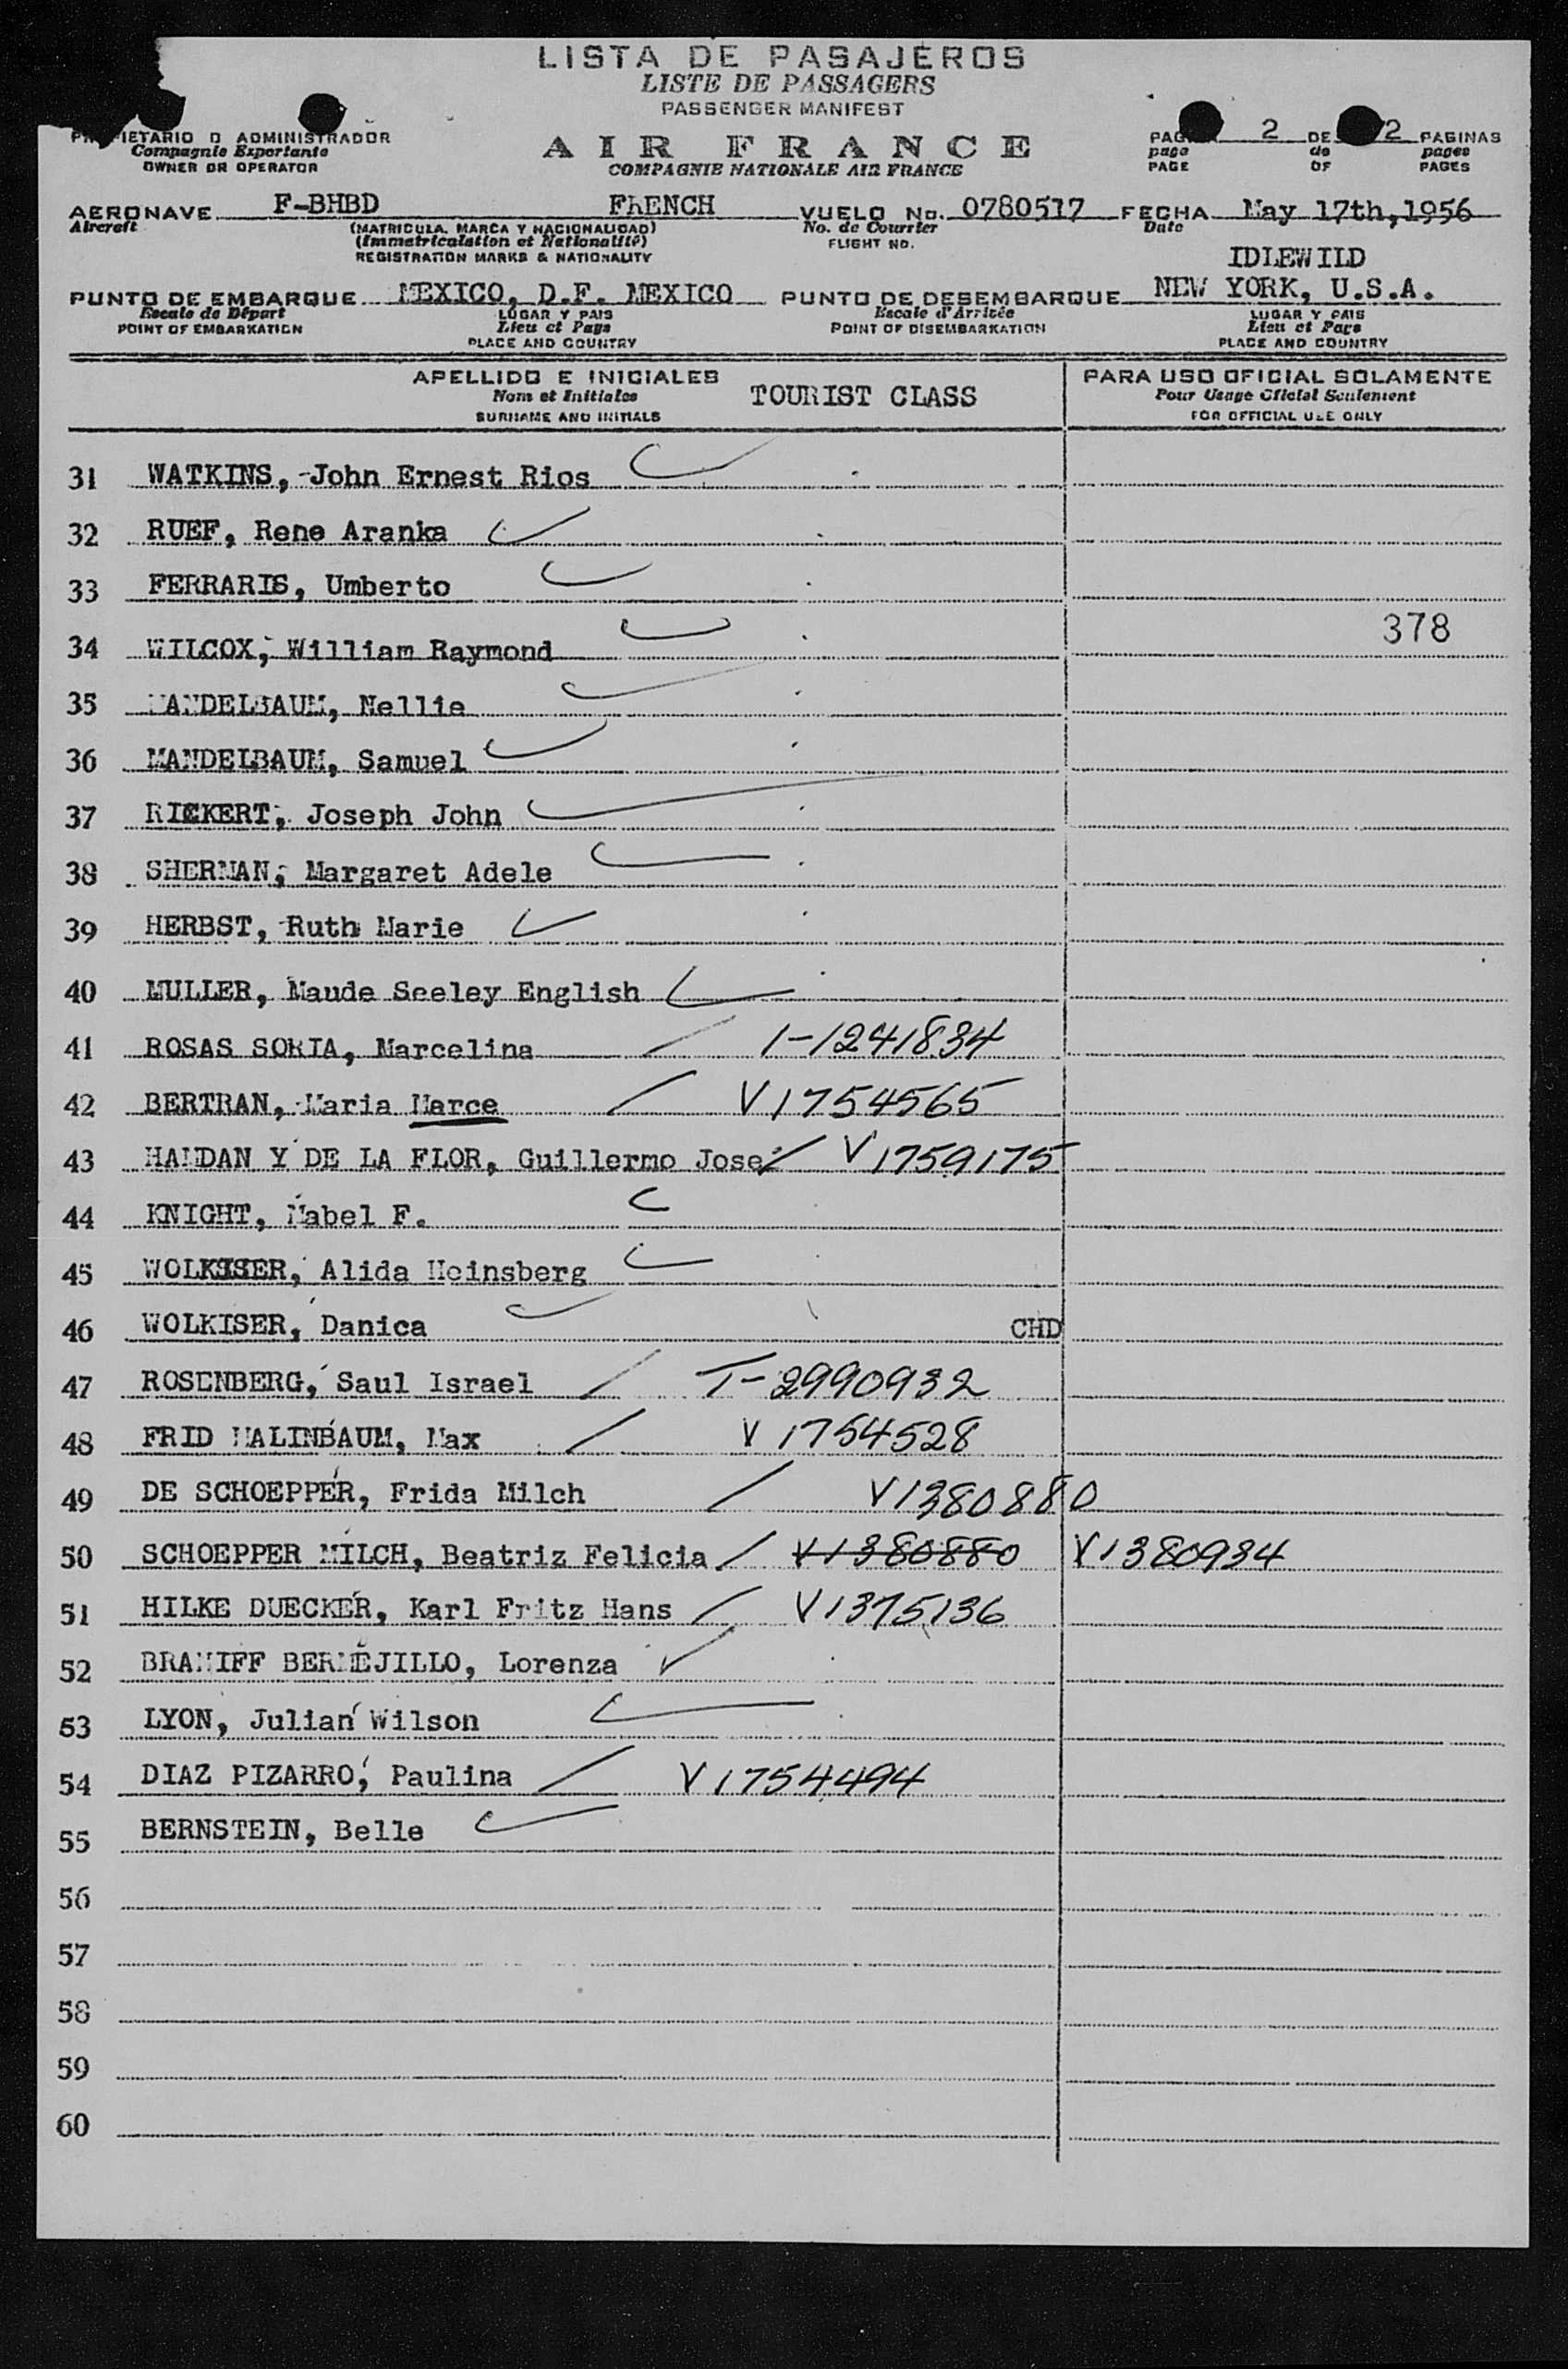 LISTA DE PASAJEROS
LISTE DE PASSAGERS
PASSENGER MANIFEST
AIR FRANCE
COMPAGNIE NATIONALE AIR FRANCE
O ADMINISTRADOR
Compagnie Exportante
OWNER OR OPERATOR
2 DE 2 PAGINAS
page de pages
PAGE OF PAGES
AERONAVE F-BHBD FRENCH VUELO No. 0780517 FECHA May 17th, 1956
Aircraft (MATRICULA. MARCA Y NACIONALIDAD) No. de Courrier Date
(Immatriculation et Nationalité) FLIGHT NO.
REGISTRATION MARKS & NATIONALITY
IDLEWILD
PUNTO DE EMBARQUE MEXICO, D.F. MEXICO PUNTO DE DESEMBARQUE NEW YORK, U.S.A.
Escale de Départ LUGAR Y PAIS Escale d'Arrivée LUGAR Y PAIS
POINT OF EMBARKATION Lieu et Pays POINT OF DISEMBARKATION Lieu et Pays
PLACE AND COUNTRY PLACE AND COUNTRY
APELLIDO E INICIALES TOURIST CLASS PARA USO OFICIAL SOLAMENTE
Nom et Initiales Pour Usage Officiel Seulement
SURNAME AND INITIALS FOR OFFICIAL USE ONLY
31 WATKINS, John Ernest Rios
32 RUEF, Rene Aranka
33 FERRARIS, Umberto
34 WILCOX, William Raymond 378
35 MANDELBAUM, Nellie
36 MANDELBAUM, Samuel
37 RIEKERT, Joseph John
38 SHERMAN, Margaret Adele
39 HERBST, Ruth Marie
40 MULLER, Maude Seeley English
41 ROSAS SORIA, Marcelina 1-1241834
42 BERTRAN, Maria Merce V1754565
43 HAUDAN Y DE LA FLOR, Guillermo Jose V1759175
44 KNIGHT, Mabel F.
45 WOLKISER, Alida Heinsberg
46 WOLKISER, Danica CHD
47 ROSENBERG, Saul Israel T-2990932
48 FRID MALINBAUM, Max V1754528
49 DE SCHOEPPER, Frida Milch V1380880
50 SCHOEPPER MILCH, Beatriz Felicia V1380880 V1380934
51 HILKE DUECKER, Karl Fritz Hans V1375136
52 BRANIFF BERMEJILLO, Lorenza
53 LYON, Julian Wilson
54 DIAZ PIZARRO, Paulina V1754494
55 BERNSTEIN, Belle
56
57
58
59
60